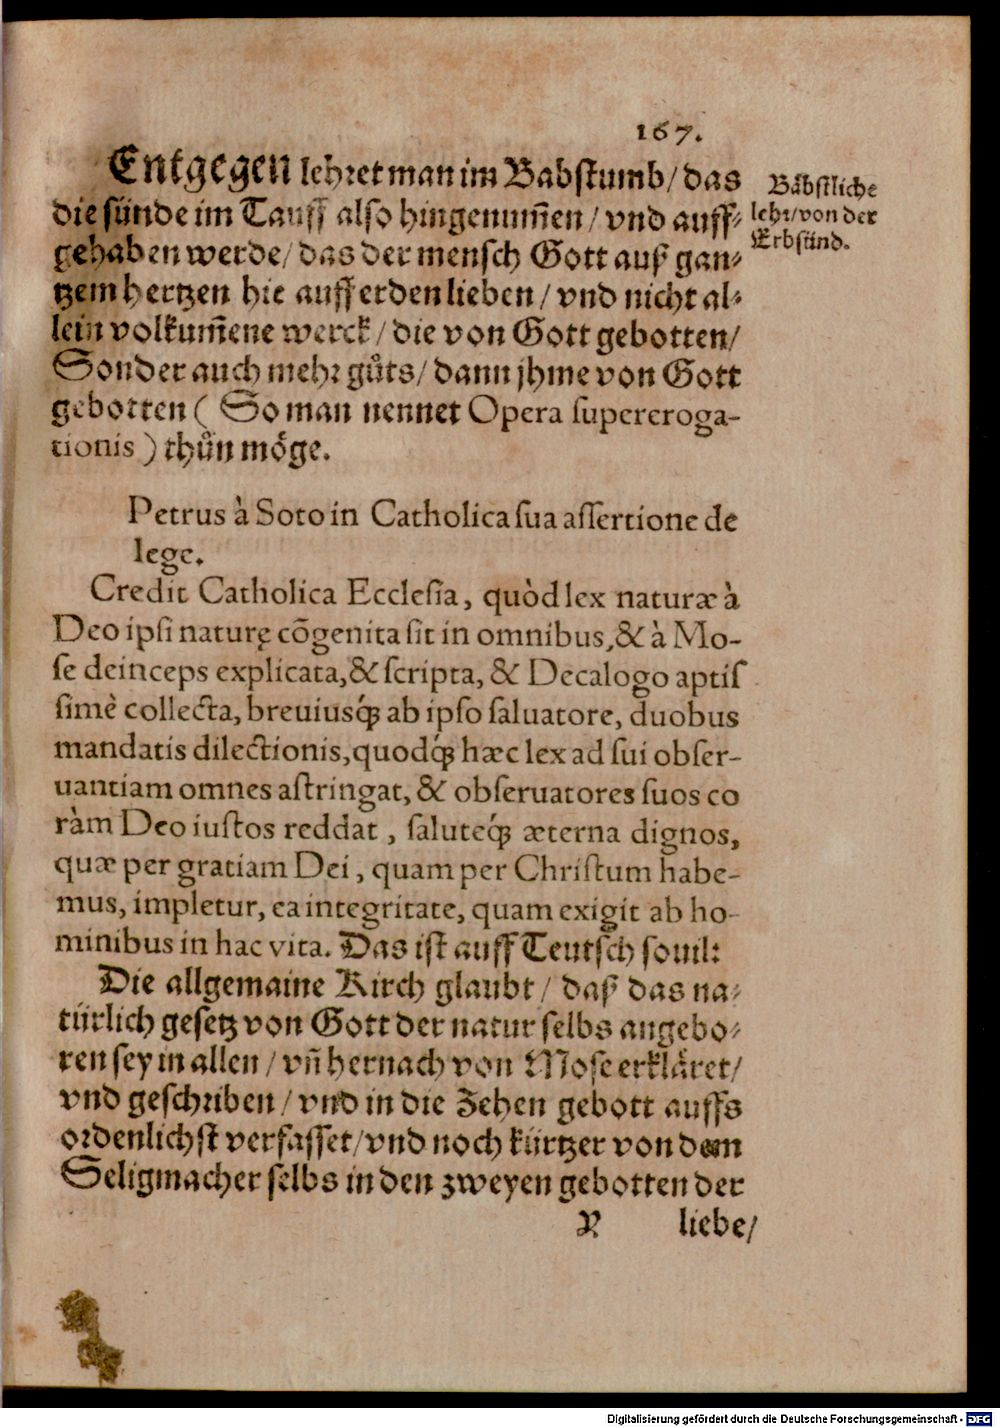 167.
Entgegen lehret man im Babstumb/ das
die sünde im Tauff also hingenum̃en/ vnd auff⸗
gehaben werde/ das der mensch Gott auß gan⸗
tzem hertzen hie auff erden lieben/ vnd nicht al⸗
lein volkum̃ene werck/ die von Gott gebotten/
Sonder auch mehr gůts/ dann jhme von Gott
gebotten ( So man nennet Opera ſupereroga-
tionis ) thůn möge.
Bäbstliche
lehr/ von der
Erbsünd.
Petrus à Soto in Catholica ſua aſſertione de
lege.
Credit Catholica Eccleſia, quòd lex naturæ à
Deo ipſi naturę cõgenita ſit in omnibus, & à Mo-
ſe deinceps explicata, & ſcripta, & Decalogo aptiſ
ſimè collecta, breuiusq́; ab ipſo ſaluatore, duobus
mandatis dilectionis, quodq́; hæc lex ad ſui obſer-
uantiam omnes aſtringat, & obſeruatores ſuos co
ràm Deo iuſtos reddat, ſaluteq́; æterna dignos,
quæ per gratiam Dei, quam per Chriſtum habe-
mus, impletur, ea integritate, quam exigit ab ho-
minibus in hac vita. Das ist auff Teutsch souil:
Die allgemaine Kirch glaubt/ daß das na⸗
türlich gesetz von Gott der natur selbs angebo⸗
ren sey in allen/ vñ hernach von Mose erkläret/
vnd geschriben/ vnd in die Zehen gebott auffs
ordenlichst verfasset/ vnd noch kürtzer von dem
Seligmacher selbs in den zweyen gebotten der
X liebe/
Digitalisierung gefördert durch die Deutsche Forschungsgemeinschaft - DFG